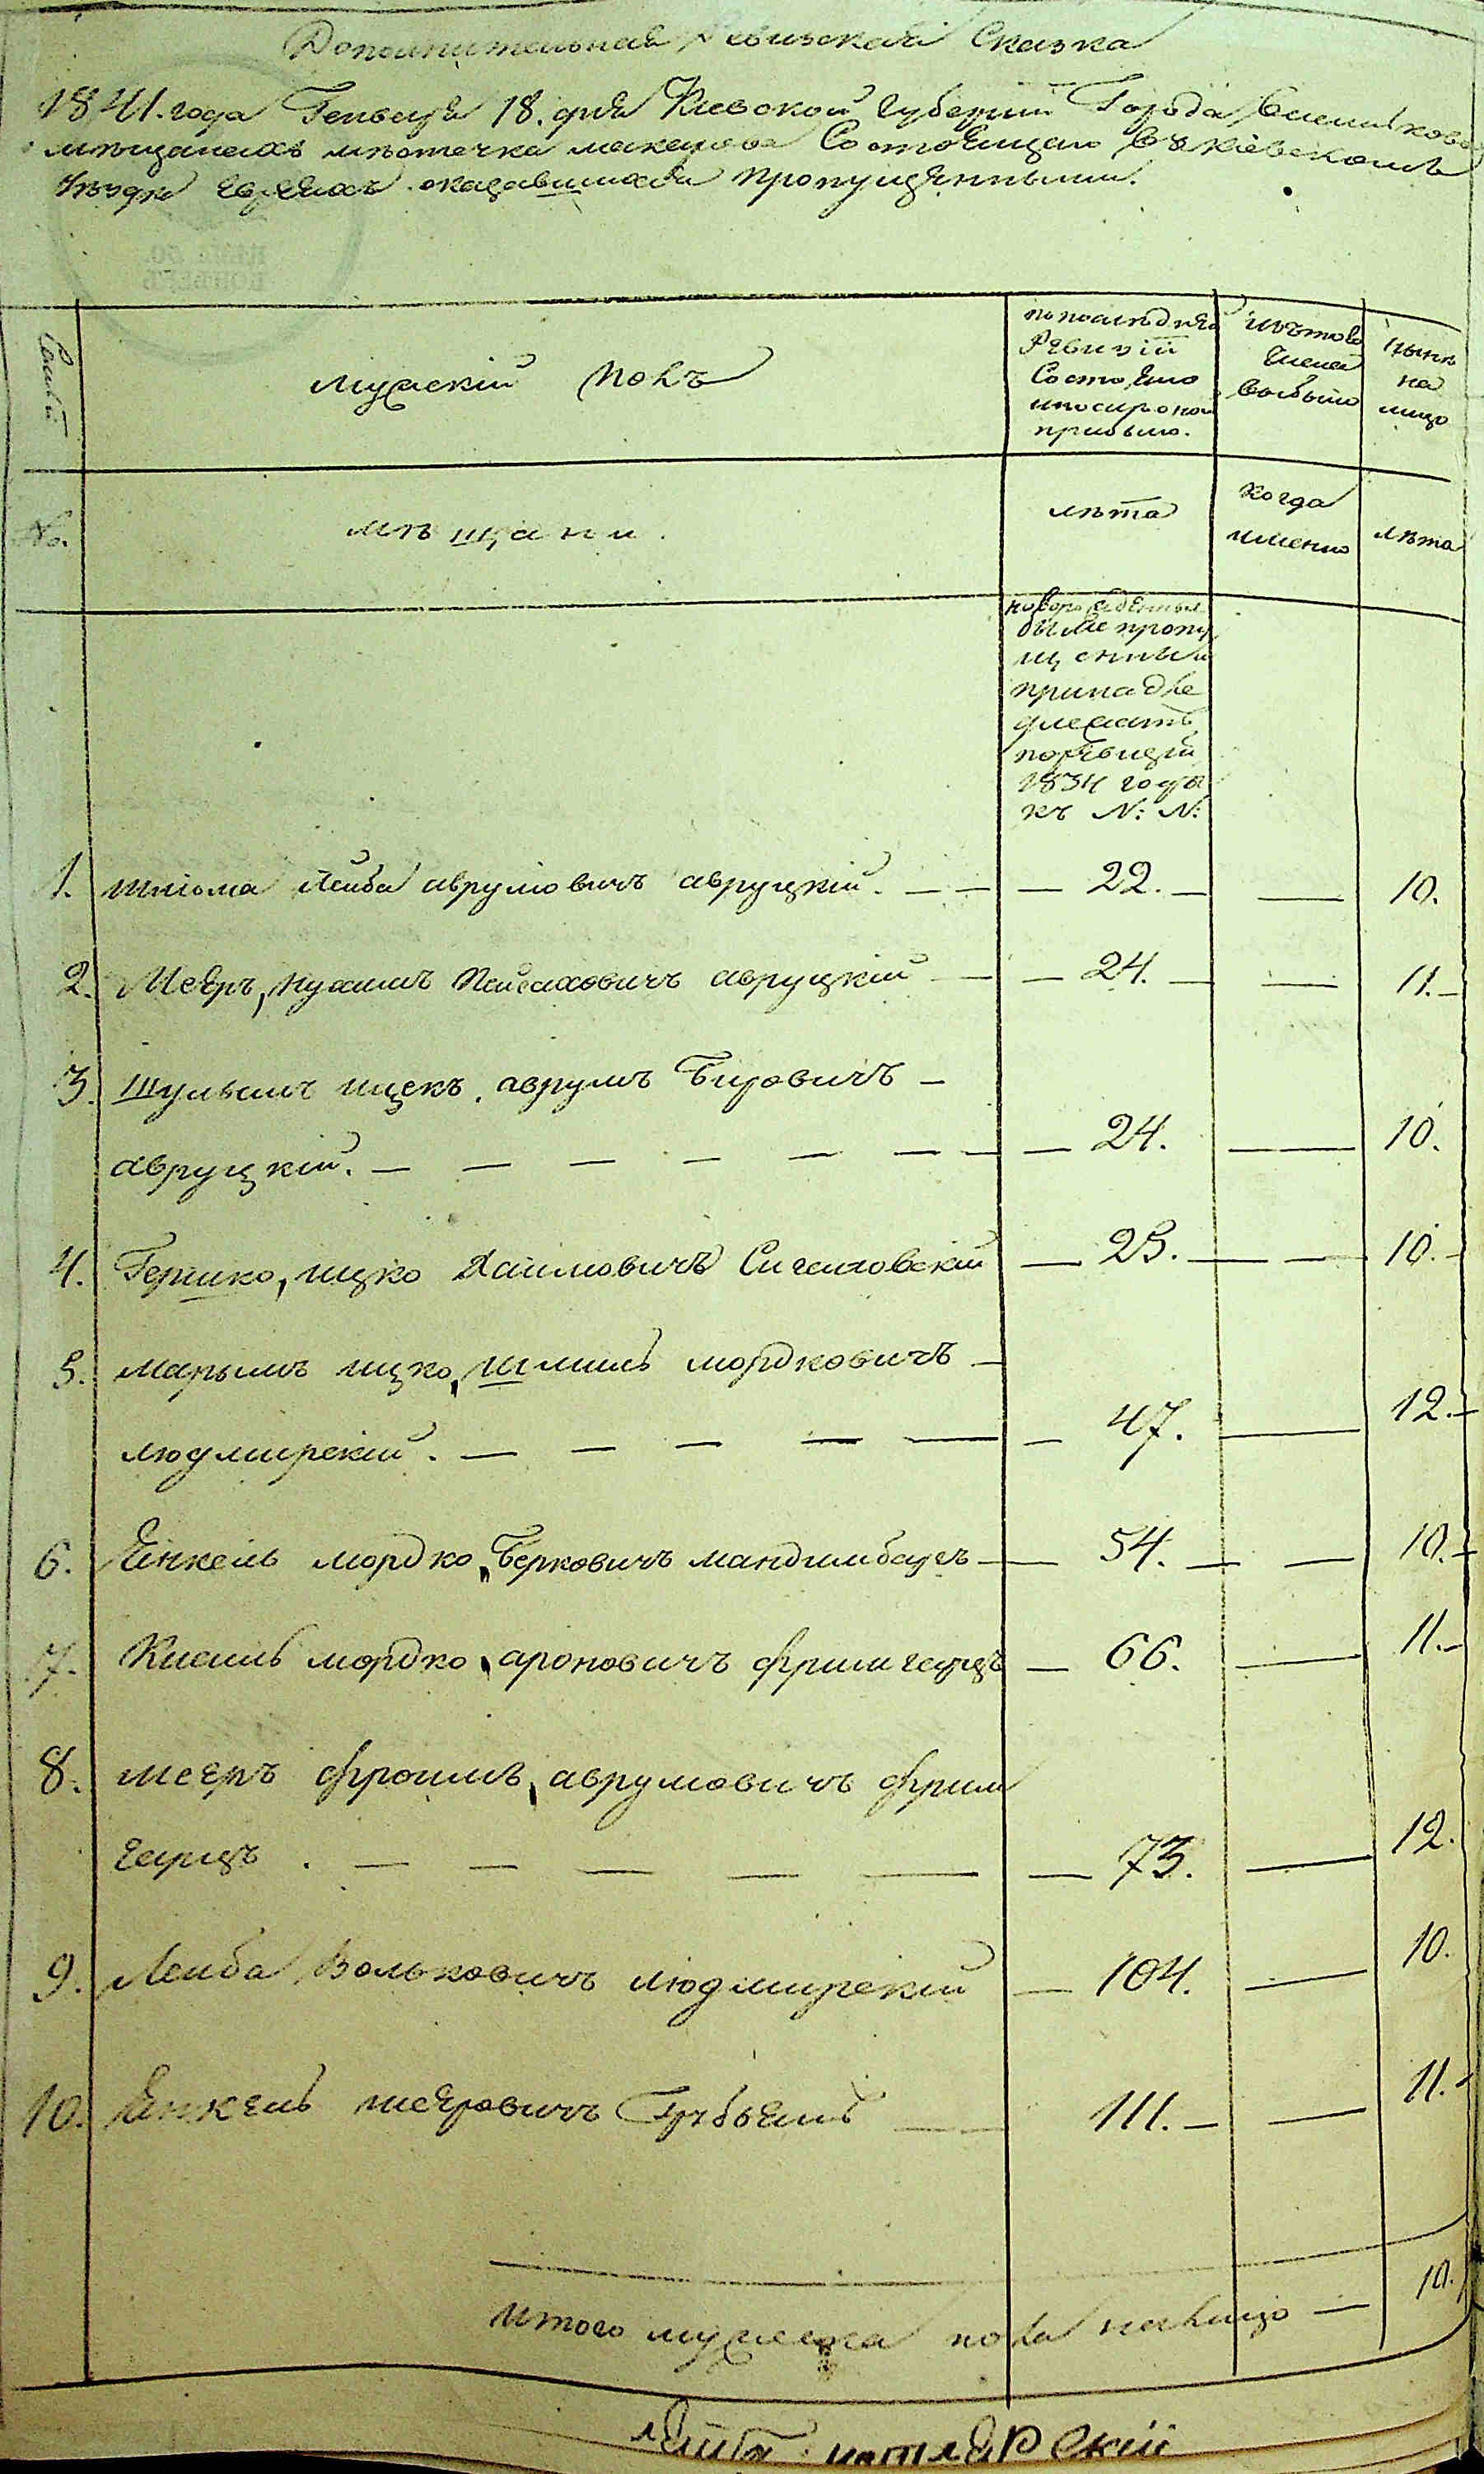 Дополнительная Ревизская Сказка
1841. года Генваря 18. дня Киевской Губернии Города Василькова
мѣщанахъ мѣстечка макарова Состоящаго въ кіевскомъ
уѣздѣ Евреяхъ оказавшихся пропущенными.
мужескій полъ
по последней
Ревизіи
Состояло
и после оной
прибыло.
изъ того
числа
выбыло
нынѣ
на
лицо
No.
мѣщани.
лѣта
когда
именно
лѣта
новорожденныя
были пропу
щенныи
принадле
длежатъ
по ревизіи
1834 года
къ N: N:
1. шліома Лейба аврумовичъ авруцкій. — — — 22. — — 10.
2. Меерь, нухимъ Пейсаховичъ авруцкій — — 24. — — 11. —
3. Шульимъ ицекъ, аврумъ Беровичъ —
авруцкій. — — — — — — — — 24. — 10.
4. Гершко, ицко Хаимовичъ Сигаловскій — 25. — — 10. —
5. марьимъ ицко, шмиль мордковичъ —
людмирскій. — — — — — — 47. — 12. —
6. Янкель мордко, Берковичъ мандзимбаръ — — 54. — — 10. —
7. Кисиль мордко, ароновичъ фришгерцъ — 66. — 11. —
8. меерь фроимъ, аврумовичъ фриш
герцъ. — — — — — — 73. — 12.
9. Леиба, Вольковичъ людмирскій — 104. — 10.
10. Янкель меяровичъ — 111. — — 11. —
Итого мужеска пола налицо — 10.
лейба